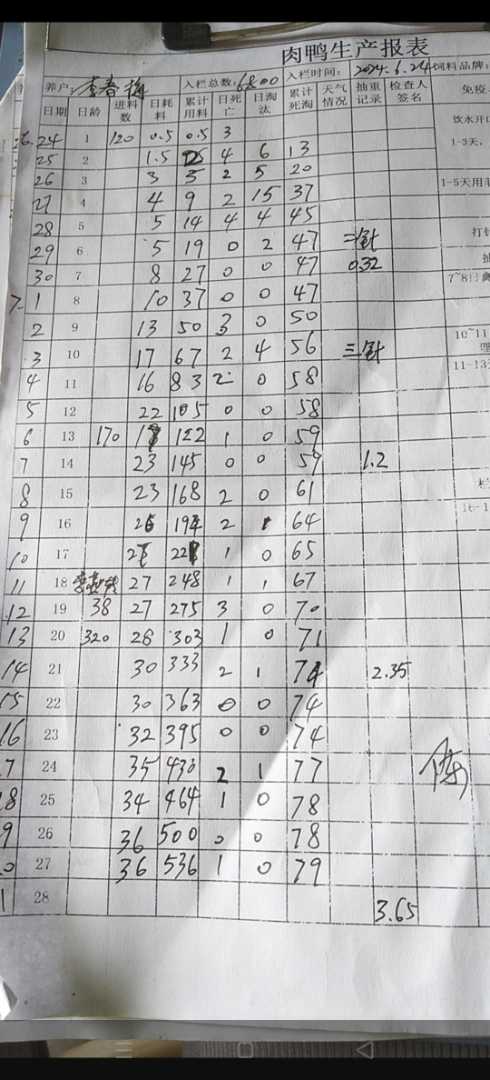 肉鸭生产报表
养户: 李春梅 入栏总数: 6800 入栏时间: 2024.6.24 饲料品牌:
日期 日龄 进料数 日耗料 累计用料 日死亡 日淘汰 累计死淘 天气情况 抽重记录 检查人签名 免疫
6.24 1 120 0.5 0.5 3 饮水开口
25 2 1.5 4 6 13 1-3天,
26 3 3 5 2 5 20
27 4 4 9 2 15 37 1-5天用
28 5 5 14 4 4 45
29 6 5 19 0 2 47 二针 打针
30 7 8 27 0 0 47 0.32
7.1 8 10 37 0 0 47 7~8日
2 9 13 50 3 0 50
3 10 17 67 2 4 56 三针 10~11
4 11 16 83 2 0 58 11-13
5 12 22 105 0 0 58
6 13 170 122 1 0 59
7 14 23 145 0 0 59 1.2
8 15 23 168 2 0 61
9 16 26 194 2 1 64 16-1
10 17 1 0 65
11 18 27 248 1 1 67
12 19 38 27 275 3 0 70
13 20 320 28 303 1 0 71
14 21 30 333 2 1 74 2.35
15 22 30 363 0 0 74
16 23 32 395 0 0 74
7 24 35 430 2 1 77
8 25 34 464 1 0 78
9 26 36 500 0 0 78
0 27 36 536 1 0 79
1 28 3.65